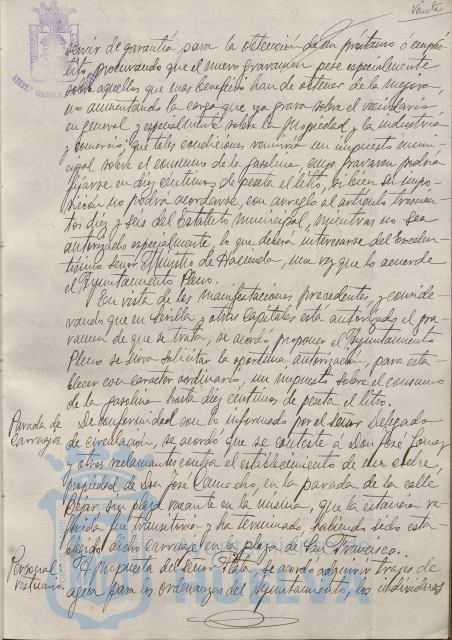 Veinte
servir de garantía para la obtención de un préstamo ó emprés-
tito, procurando que el nuevo gravamen pese especialmente
sobre aquellos que mas beneficio han de obtener de la mejora,
no aumentando la carga que ya grava sobre el vecindario
en general y especialmente sobre la propiedad y la industria
y comercio, que tales condiciones reuniría un impuesto muni-
cipal sobre el consumo de la gasolina, cuyo gravamen podría
fijarse en diez centimos de peseta el litro, si bien su impo-
sición no podrá acordarse, con arreglo al artículo trescien-
tos diez y seis del Estatuto municipal, mientras no sea
autorizado especialmente, lo que deberá interesarse del Excelen-
tísimo señor Ministro de Hacienda, una vez que lo acuerde
el Ayuntamiento Pleno.
En vista de las manifestaciones precedentes, y conside-
rando que en Sevilla y otras capitales está autorizado el gra-
vamen de que se trata, se acordó proponer al Ayuntamiento
Pleno se sirva solicitar la oportuna autorización, para esta-
blecer con caracter ordinario, un impuesto sobre el consumo
de la gasolina hasta diez centimos de peseta el litro.
Parada de
carruajes.
De conformidad con lo informado por el señor Delegado
de circulación, se acordó que se conteste á Don José
y otros reclamantes contra el establecimiento de un coche,
propiedad de Don José Camacho, en la parada de la calle
Béjar, sin plaza vacante en la misma, que la estancia re-
ferida fue transitoria y ha terminado, habiendo sido esta-
blecido dicho carruaje en la plaza de San Francisco.
Personal:
vestuario.
A propuesta del señor Plata, se acordó adquirir trajes de
agua para los ordenanzas del Ayuntamiento, los individuos
Ayuntamiento de
HUELVA